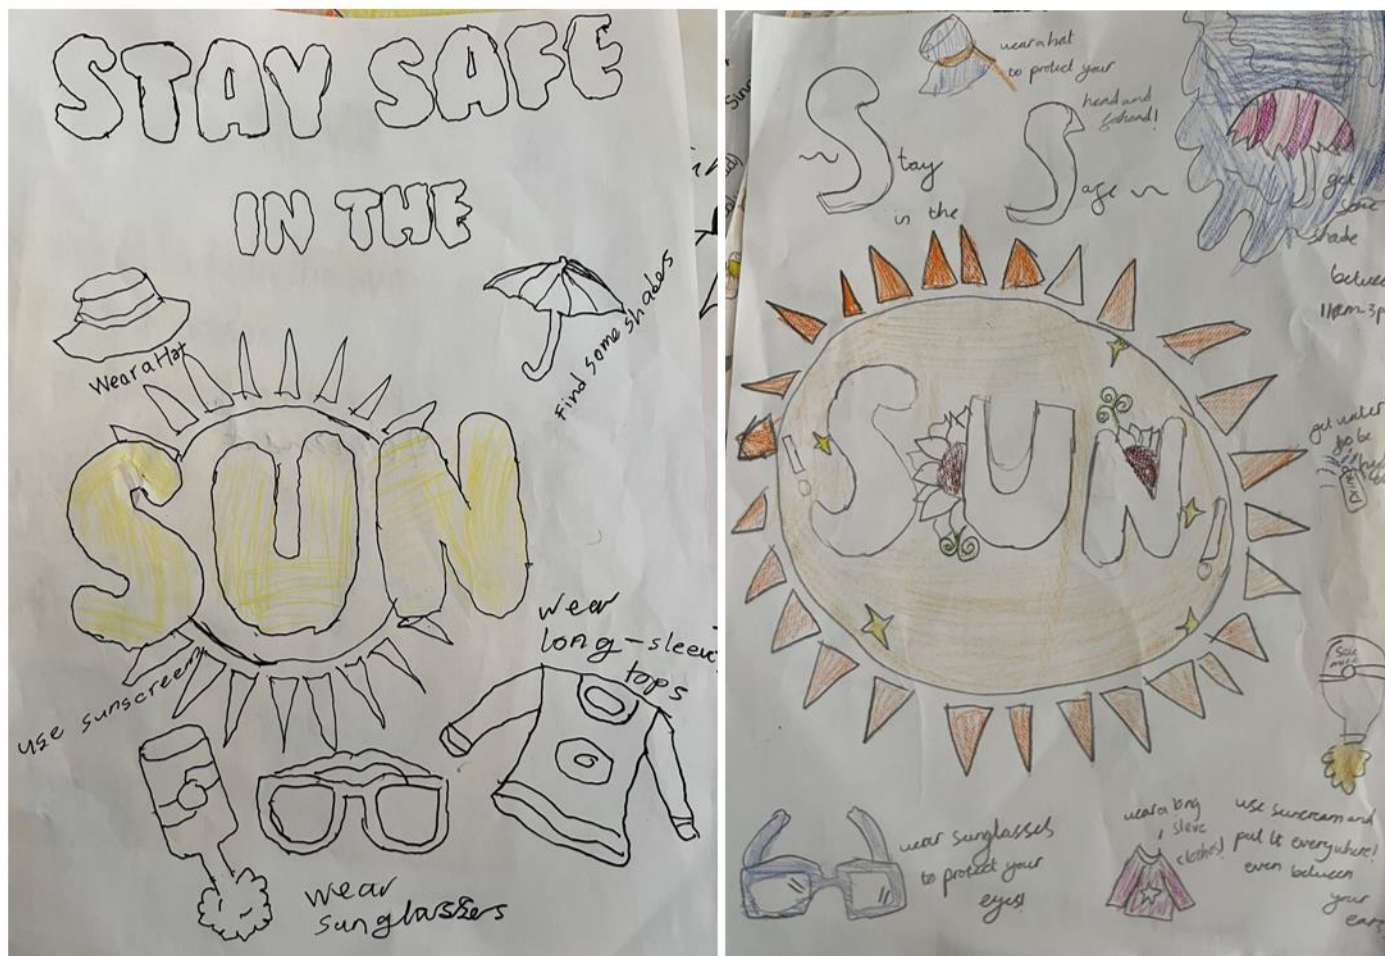 STAY SAFE
IN THE
Wear a Hat
Find some shades
SUN
use sunscreen
wear
long-sleeve
tops
wear
sunglasses
wear a hat
to protect your
head and
Stay Safe
in the
get
some
shade
between
11am-3p
SUN!
get water
to be
wear sunglasses
to protect your
eyes!
wear a long
sleve
clothes!
use suncream and
put it everywhere!
even between
your
ears